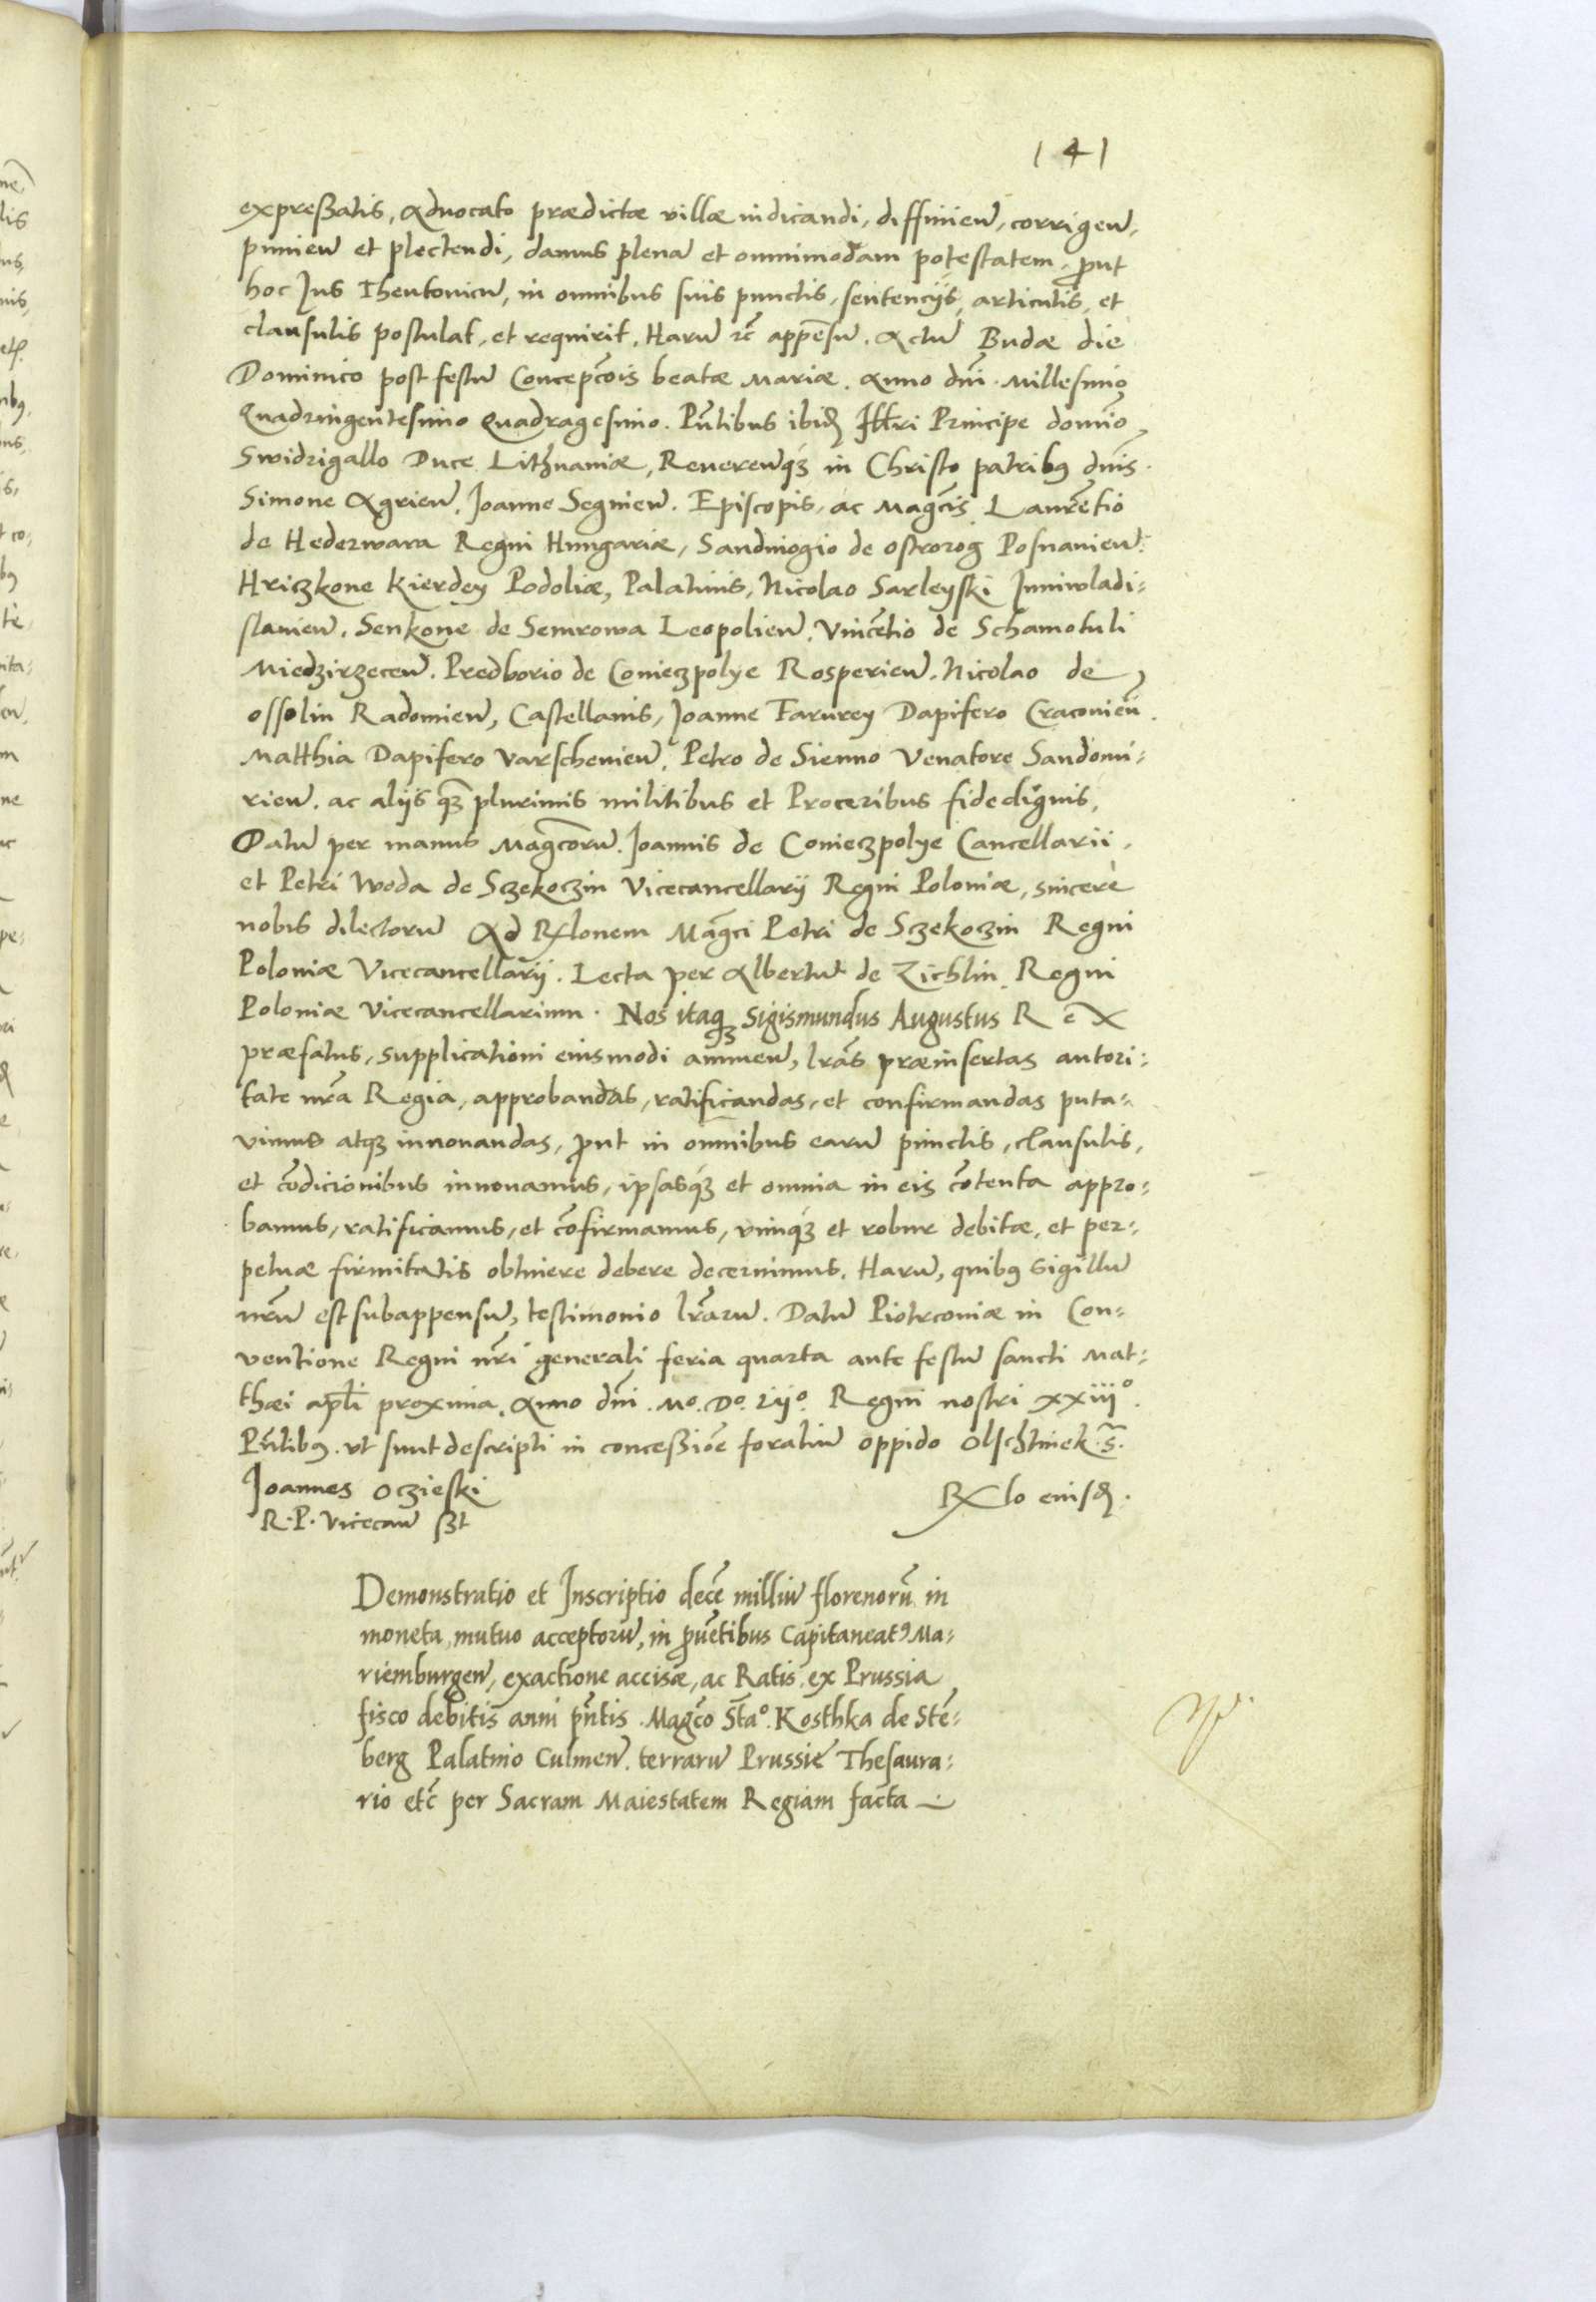 141
expreßatis, Aduocato prædictæ villæ iudicandi, diffinieñ, corrigeñ,
punieñ et plectendi, damus plenã et omnimodam potestatem, put
hoc Jus Theutonicũ, in omnibus suis punctis, sentencijs, articulis, et
clausulis postulat, et requirit. Harũ etc̃ appẽsũ. Actũ Budæ die
Dominico post festũ Concepc̃ois beatæ Mariæ. Anno dñi. Millesimo
Quadringentesimo Quadragesimo. Pñtibus ibid̃ Jllri Principe domĩo
Swidrigallo Duce Lithuaniæ, Reuereñqȝ in Christo patribꝰ dñis.
Simone Agrieñ, Joanne Segnieñ. Episcopis, ac Magc̃is Laurẽtio
de Hederwara Regni Hungariæ, Sandiuogio de Ostrorog Posnanieñ.
Hriczkone Kierdey Podoliæ, Palatinis, Nicolao Sarleyski Juniwladi:
slauieñ. Senkone de Semrowa Leopolieñ. Vincẽtio de Schamotuli
Miedzirzeceñ. Predborio de Conieczpolye Rosperieñ. Nicolao de
Ossolin Radomieñ, Castellanis, Joanne Farurey Dapifero Cracouieñ.
Matthia Dapifero Varschenieñ, Petro de Sienno Venatore Sandomi:
rieñ. ac alijs qȝ plurimis militibus et Proceribus fidedignis,
Datũ per manus Magc̃orũ. Joannis de Conieczpolye Cancellarii,
et Petri Woda de Sczekoczin Vicecancellarij Regni Poloniæ, sincerè
nobis dilectorũ Ad Rlonem Mag̃ci Petri de Sczekoczin Regni
Poloniæ Vicecancellarij. Lecta per Albertũ de Zichlin Regni
Poloniæ Vicecancellarium. Nos itaqȝ Sigismundus Augustus Rex
præfatus, supplicationi eiusmodi annueñ, lrãs præinsertas autori:
tate nrã Regia, approbandas, ratificandas, et confirmandas puta:
uimus atqȝ innouandas, put in omnibus earũ punctis, clausulis,
et cõdicionibus innouamus, ipsasqȝ et omnia in eis cõtenta appro:
bamus, ratificamus, et cõfirmamus, vimqȝ et robur debitæ, et per:
petuæ firmitatis obtinere debere decernimus. Harũ, quibꝰ sigillũ
nrũ est subappensũ, testimonio lrãrũ. Datũ Piotrcouiæ in Con:
uentione Regni nrĩ generali feria quarta ante festũ sancti Mat:
thæi apłi proxima. Anno dñi. Mo. Do. Lijo. Regni nostri xxiijo.
Pñtibꝰ. vt sunt descripti in conceßiõe foraliũ oppido Olschtinek s̃.
Joannes Oczieski
R. P. Vicecañ ßt
Rlo eiusd̃.
Demonstratio et Inscriptio decẽ milliũ florenorũ in
moneta, mutuo acceptorũ, in puẽtibus Capitaneatꝰ Ma:
riemburgeñ, exactione accisæ, ac Ratis ex Prussia
fisco debitis anni pñtis. Magc̃o Stao. Kosthka de Stẽ:
berg Palatino Culmeñ. terrarũ Prussiæ Thesaura:
rio etc̃ per Sacram Maiestatem Regiam facta